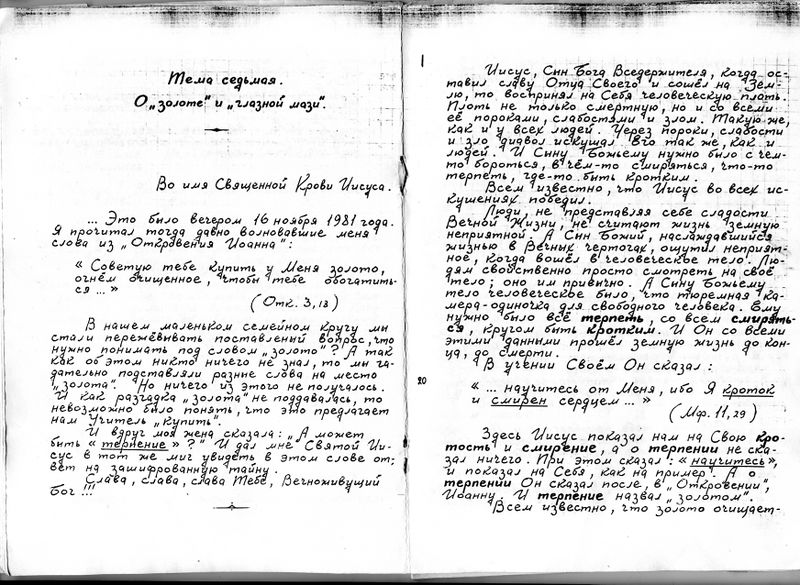 Тема седьмая.
О „золоте" и „глазной мази".
Во имя Священной Крови Иисуса.
... Это было вечером 16 ноября 1981 года.
Я прочитал тогда давно волновавшие меня
слова из „Откровения Иоанна":
« Советую тебе купить у Меня золото,
огнём очищенное, чтобы тебе обогатить-
ся ... »
(Отк. 3,18)
В нашем маленьком семейном кругу мы
стали пережёвывать поставленый вопрос, что
нужно понимать под словом „золото"? А так
как об этом никто ничего не знал, то мы га-
дательно подставляли разные слова на место
„золота". Но ничего из этого не получалось.
И как разгадка „золота" не поддавалась, то
невозможно было понять, что это предлагает
нам Учитель „купить".
И вдруг моя жена сказала: „А может
быть « терпение » ?" И дал мне Святой Ии-
сус в тот же миг увидеть в этом слове от-
вет на зашифрованную тайну.
Слава, слава, слава Тебе, Вечноживущий
Бог !!!
Иисус, Сын Бога Вседержителя, когда ос-
тавил славу Отца Своего и сошёл на Зем-
лю, то воспринял на Себя человеческую плоть.
Плоть не только смертную, но и со всеми
её пороками, слабостями и злом. Такую же,
как и у всех людей. Через пороки, слабости
и зло диавол искушал Его так же, как и
людей. И Сыну Божьему нужно было с чем-
то бороться, в чём-то смиряться, что-то
терпеть, где-то быть кротким.
Всем известно, что Иисус во всех ис-
кушениях победил.
Люди, не представляя себе сладости
Вечной Жизни, не считают жизнь земную
неприятной. А Сын Божий, наслаждавшийся
жизнью в Вечных чертогах, ощутил неприят-
ное, когда вошёл в человеческое тело. Лю-
дям свойственно просто смотреть на своё
тело; оно им привычно. А Сыну Божьему
тело человеческое было, что тюремная ка-
мера-одиночка для свободного человека. Ему
нужно было всё терпеть, со всем смирять-
ся, кругом быть кротким. И Он со всеми
этими данными прошёл земную жизнь до кон-
ца, до смерти.
В учении Своём Он сказал:
20
« ... научитесь от Меня, ибо Я кроток
и смирен сердцем ... »
(Мф. 11, 29)
Здесь Иисус показал нам на Свою кро-
тость и смирение, а о терпении не ска-
зал ничего. При этом сказал: « научитесь »,
и показал на Себя, как на пример. А о
терпении Он сказал после, в „Откровении",
Иоанну. И терпение назвал „золотом".
Всем известно, что золото очищает-